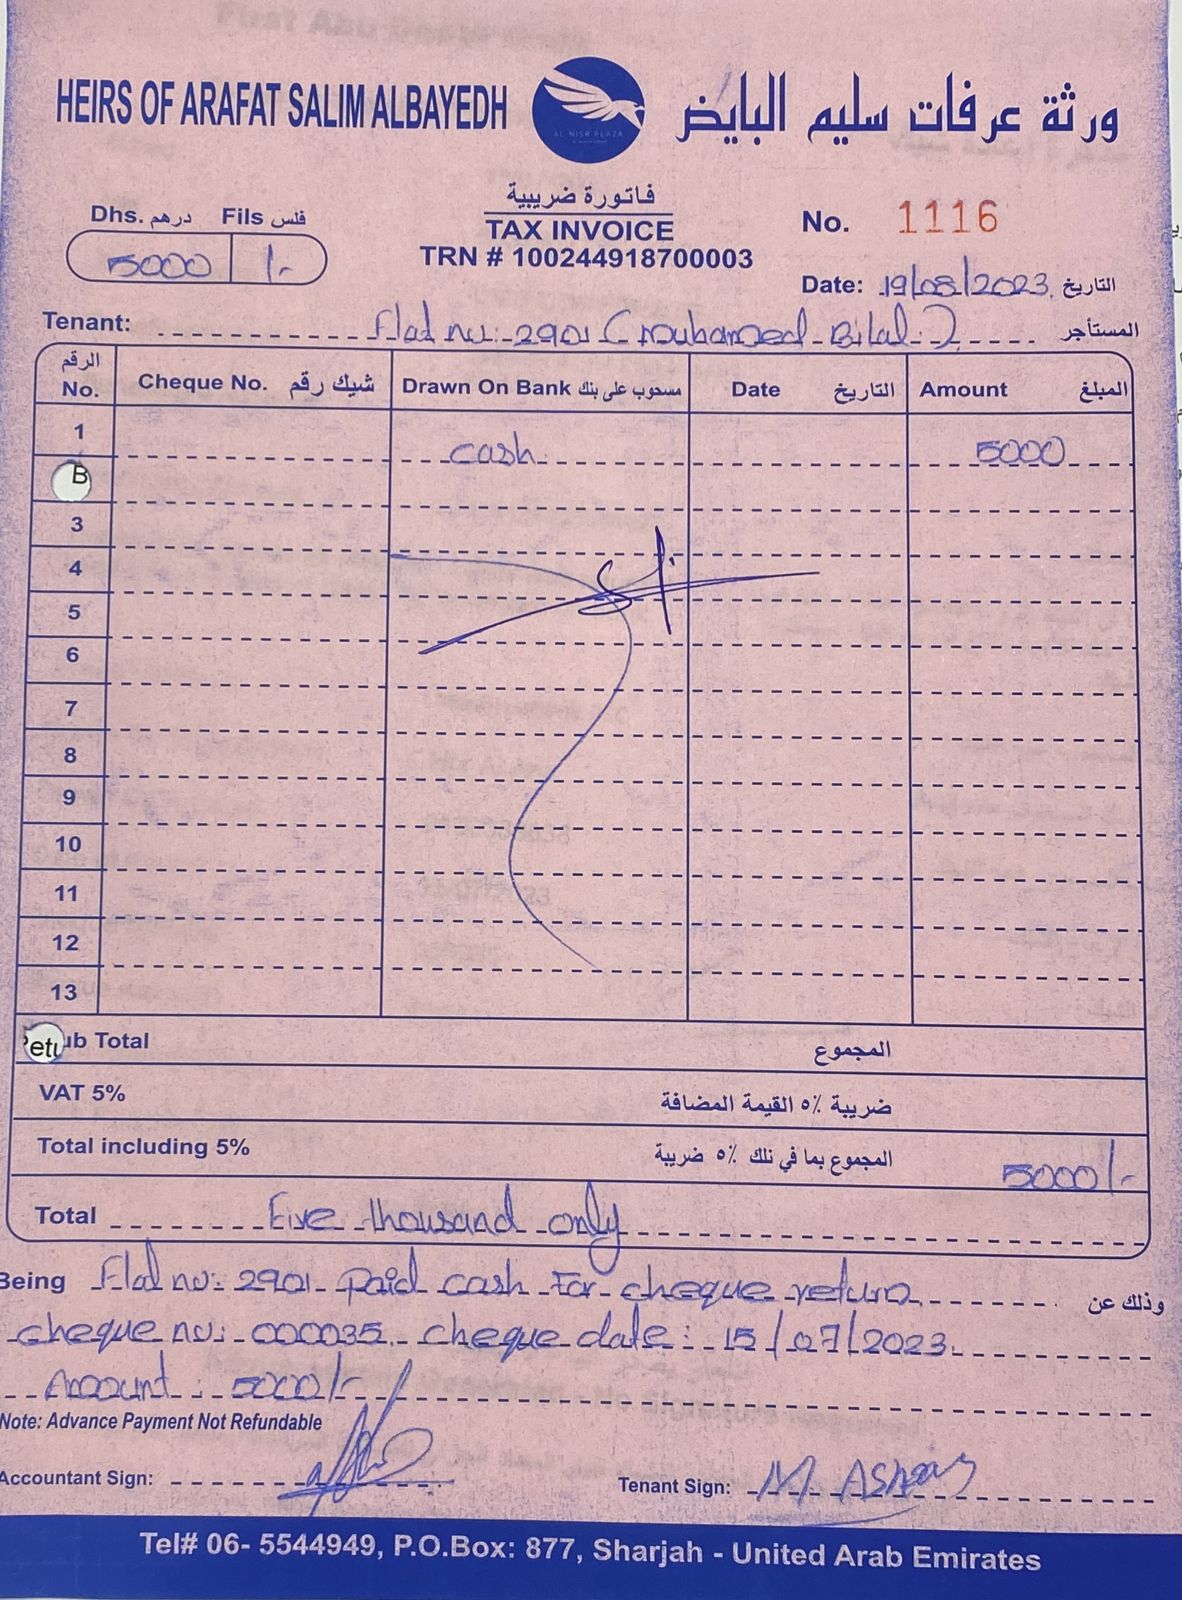 HEIRS OF ARAFAT SALIM ALBAYEDH
AL NISR PLAZA
ورثة عرفات سليم البايض
فاتورة ضريبية
TAX INVOICE
TRN # 100244918700003
Dhs. درهم Fils فلس
5000 /-
No. 1116
Date: 19/08/2023 التاريخ
Tenant: Flat no: 2901 (Mouhamed Bilal) المستأجر
الرقم No. Cheque No. شيك رقم Drawn On Bank مسحوب على بنك Date التاريخ Amount المبلغ
1 cash 5000
B
3
4
5
6
7
8
9
10
11
12
13
ub Total المجموع
VAT 5% ضريبة ٥٪ القيمة المضافة
Total including 5% المجموع بما في ذلك ٥٪ ضريبة 5000/-
Total Five thousand only
Being Flat no: 2901 Paid cash For cheque return وذلك عن
cheque no: 000035 cheque date: 15/07/2023
Amount: 5000/-
Note: Advance Payment Not Refundable
Accountant Sign:
Tenant Sign: M Ashraf
Tel# 06- 5544949, P.O.Box: 877, Sharjah - United Arab Emirates